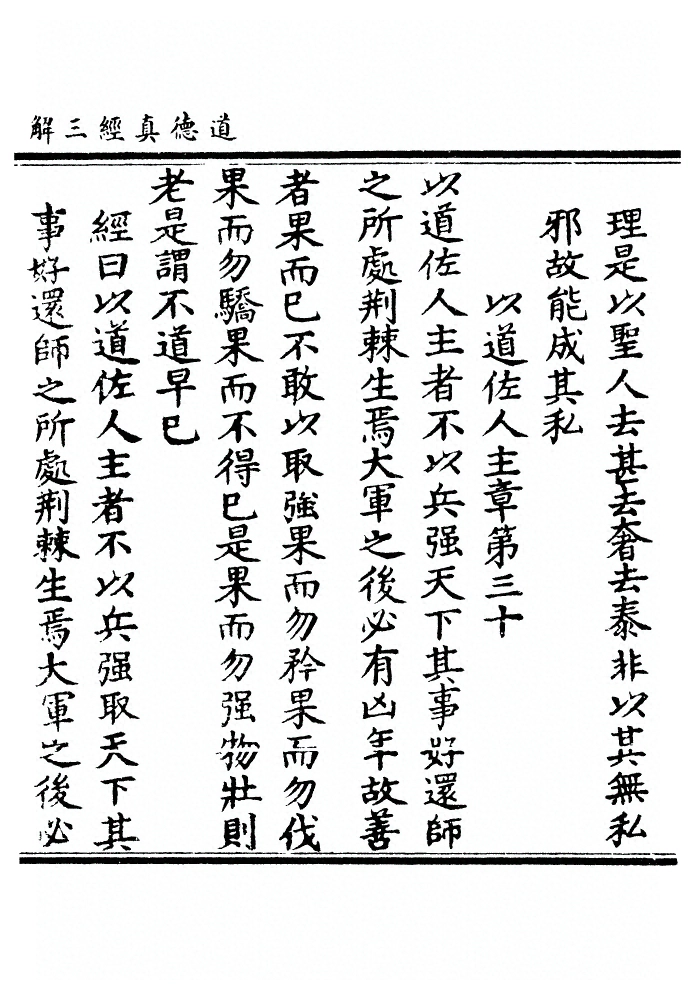 道德真經三解
理是以聖人去甚去奢去泰非以其無私
邪故能成其私
以道佐人主章第三十
以道佐人主者不以兵强天下其事好還師
之所處荆棘生焉大軍之後必有凶年故善
者果而已不敢以取強果而勿矜果而勿伐
果而勿驕果而不得已是果而勿强物壯則
老是謂不道早已
經曰以道佐人主者不以兵强取天下其
事好還師之所處荆棘生焉大軍之後必